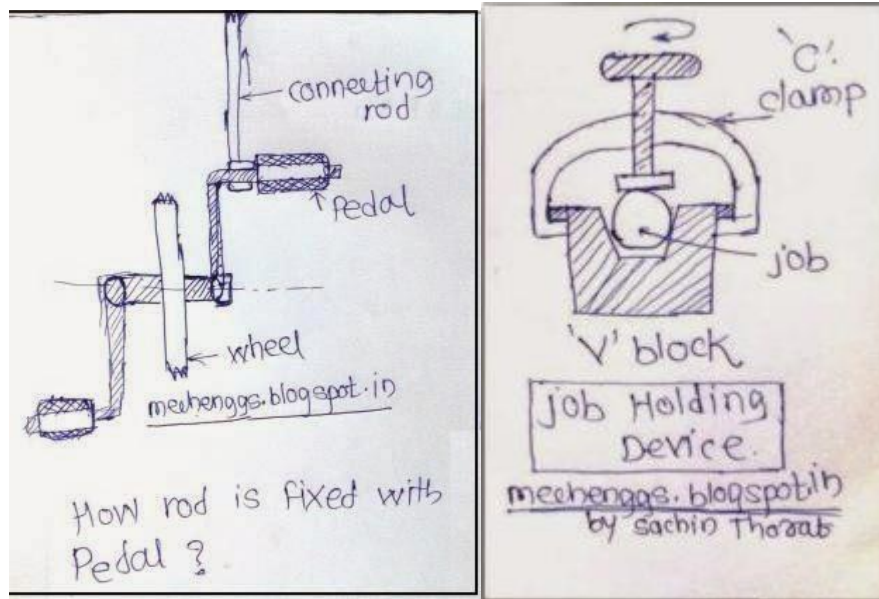 connecting
rod
Pedal
wheel
mechenggs.blogspot.in
How rod is fixed with
Pedal ?
'C'
clamp
job
'V' block
job Holding
Device.
mechenggs.blogspot.in
by Sachin Thorat